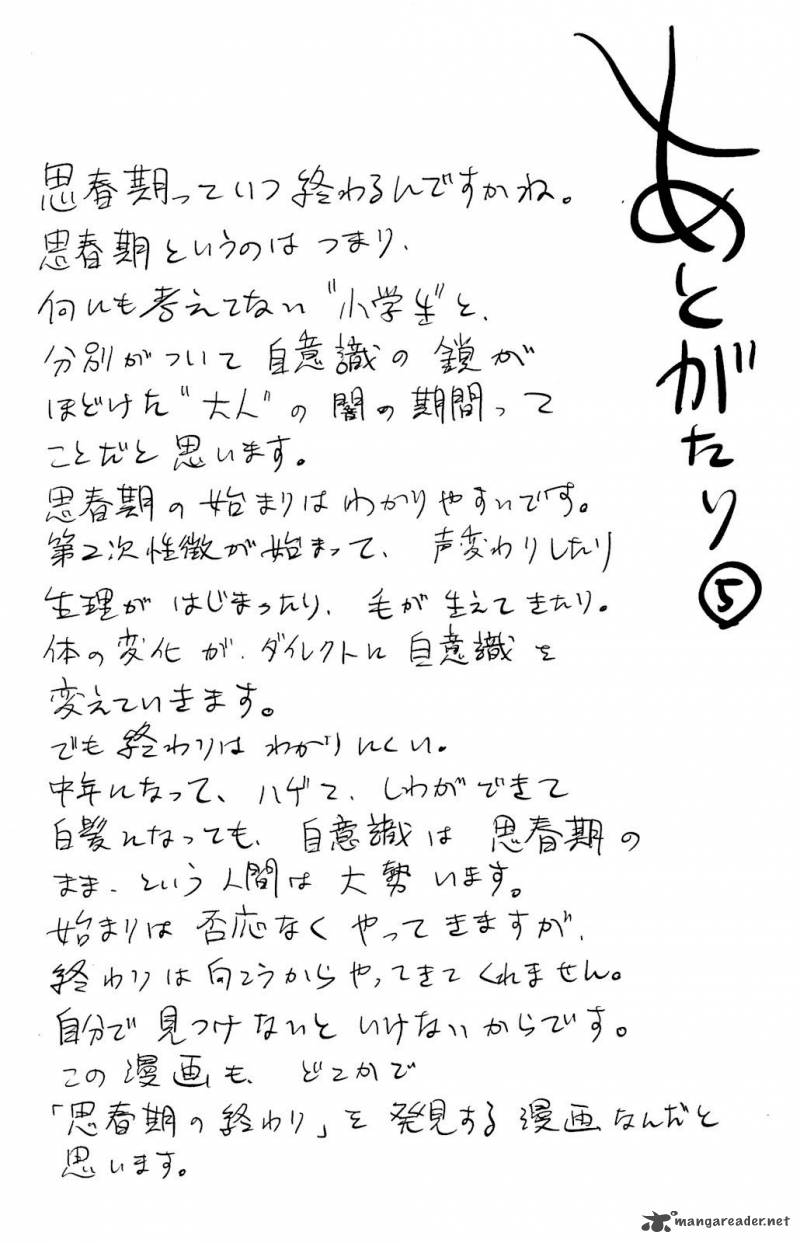 あとがたり⑤
思春期っていつ終わるんですかね。
思春期というのは つまり、
何にも考えてない〝小学生〟と、
分別がついて 自意識の鎖が
ほどけた〝大人〟の闇の期間って
ことだと思います。
思春期の始まりは わかりやすいです。
第2次性徴が始まって、 声変わりしたり
生理が はじまったり、 毛が生えてきたり。
体の変化が、ダイレクトに 自意識を
変えていきます。
でも終わりは わかりにくい。
中年になって、 ハゲて、 しわができて
白髪になっても、 自意識は 思春期の
まま、という人間は 大勢います。
始まりは 否応なく やってきますが、
終わりは向こうからやってきてくれません。
自分で見つけないと いけないからです。
この漫画も、 どこかで
「思春期の終わり」を発見する漫画なんだと
思います。
mangareader.net